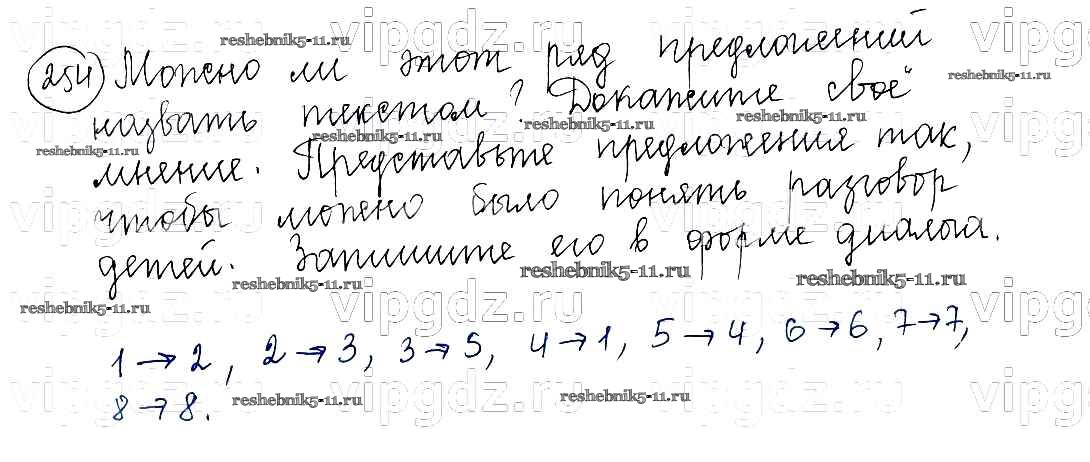 254) Можно ли этот ряд предложений
назвать текстом? Докажите своё
мнение. Представьте предложения так,
чтобы можно было понять разговор
детей. Запишите его в форме диалога.
1→2, 2→3, 3→5, 4→1, 5→4, 6→6, 7→7,
8→8.
vipgdz.ru
reshebnik5-11.ru